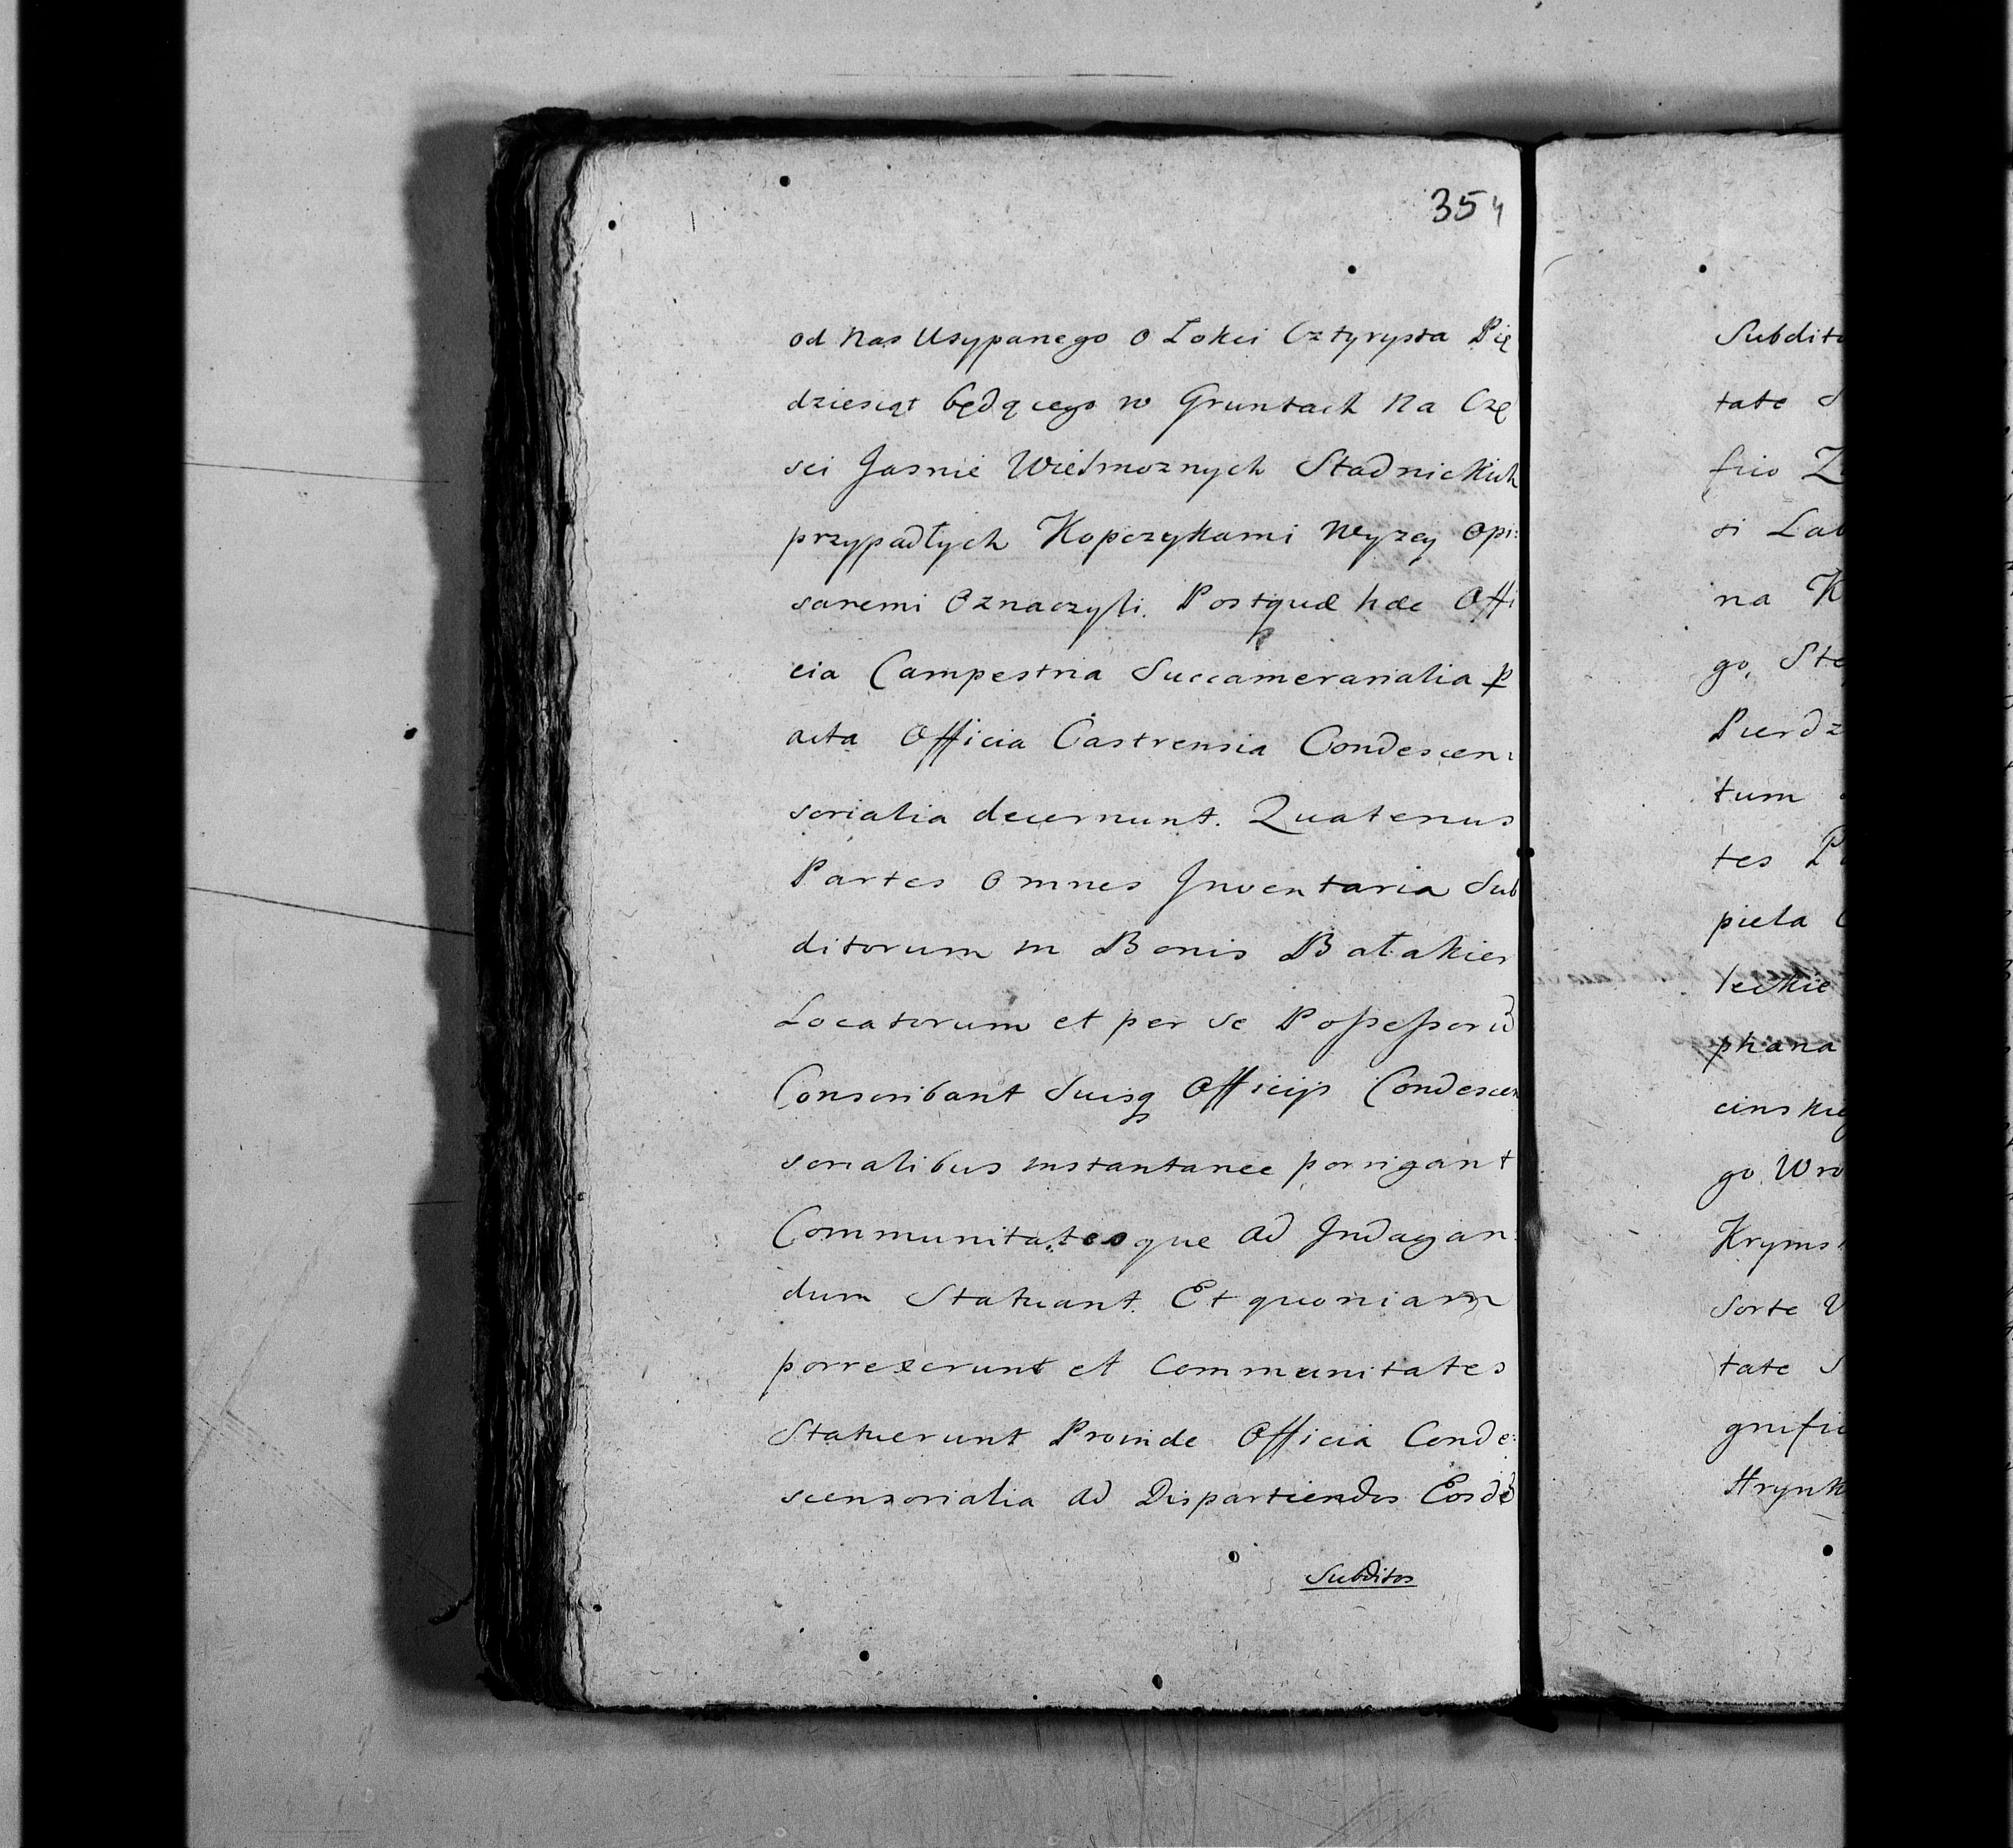 354
od nas Usypanego o Łokci Cztyrysta Pię
dziesiąt będącego w Gruntach na Czę
sci Jasnie Wielmoznych Stadnickich
przypadłych Kopczykami Wyzey Opi:
sanemi Oznaczyli. Postquæ hæc Offi
cia Campestria Succamerarialia p
acta Officia Castrensia Condescen:
sorialia decernunt. Quatenus
Partes omnes Inventaria Sub
ditorum in Bonis Bałakier
Locatorum et per se Possessorũ
Conscribant Suisq Officijs Condescen
sorialibus instantanee porrigant
Communitatesque ad Indagan:
dum Statuant. Et quoniam
porrexerunt et Communitates
Statuerunt Proinde Officia Conde:
scensorialia ad Dispartiendos Eosdẽ
Subditos
Subdito
tate S
ficio Z
si Lab
na K
go, Ste
Pierdz
tum
tes P
piela
leckie
phana
cinskieg
go Wro
Kryms
Sorte V
tate S
gnific
Hrynk